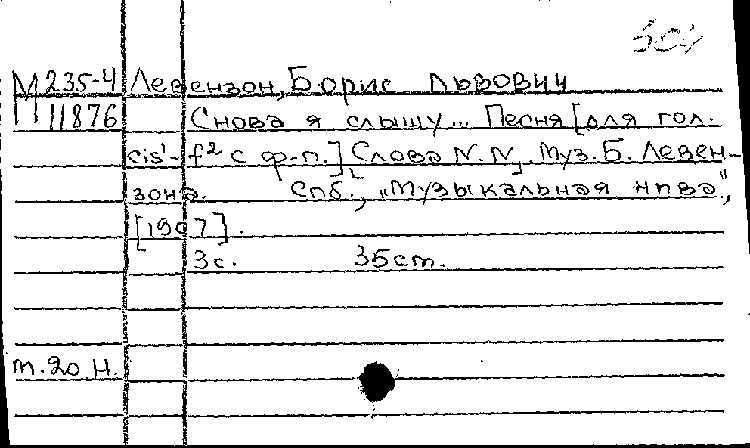 М 235-4 Левензон, Борис Львович
11876 Снова я слышу... Песня [для гол.
cis¹-f² с ф-п.] Слова N. N., муз. Б. Левен-
зона. Спб., "Музыкальная нива",
[1907].
3с. 35ст.
т. 20 н.